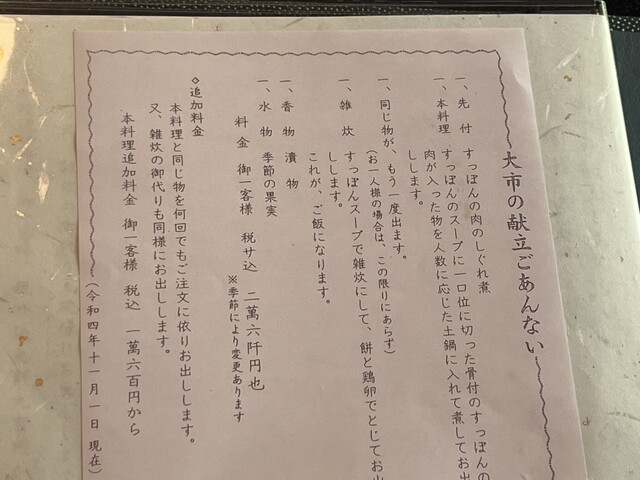 大市の献立ごあんない
一、先付 すっぽんの肉のしぐれ煮
一、本料理 すっぽんのスープに一口位に切った骨付のすっぽんの
肉が入った物を人数に応じた土鍋に入れて煮してお出
しします。
一、同じ物が、もう一度出ます。
(お一人様の場合は、この限りにあらず)
一、雑炊 すっぽんスープで雑炊にして、餅と鶏卵でとじてお出
しします。
これが、ご飯になります。
一、香物 漬物
一、水物 季節の果実
料金 御一客様 税サ込 二萬六阡円也
※季節により変更あります
◇追加料金
本料理と同じ物を何回でもご注文に依りお出しします。
又、雑炊の御代りも同様にお出しします。
本料理追加料金 御一客様 税込 一萬六百円から
(令和四年十一月一日 現在)